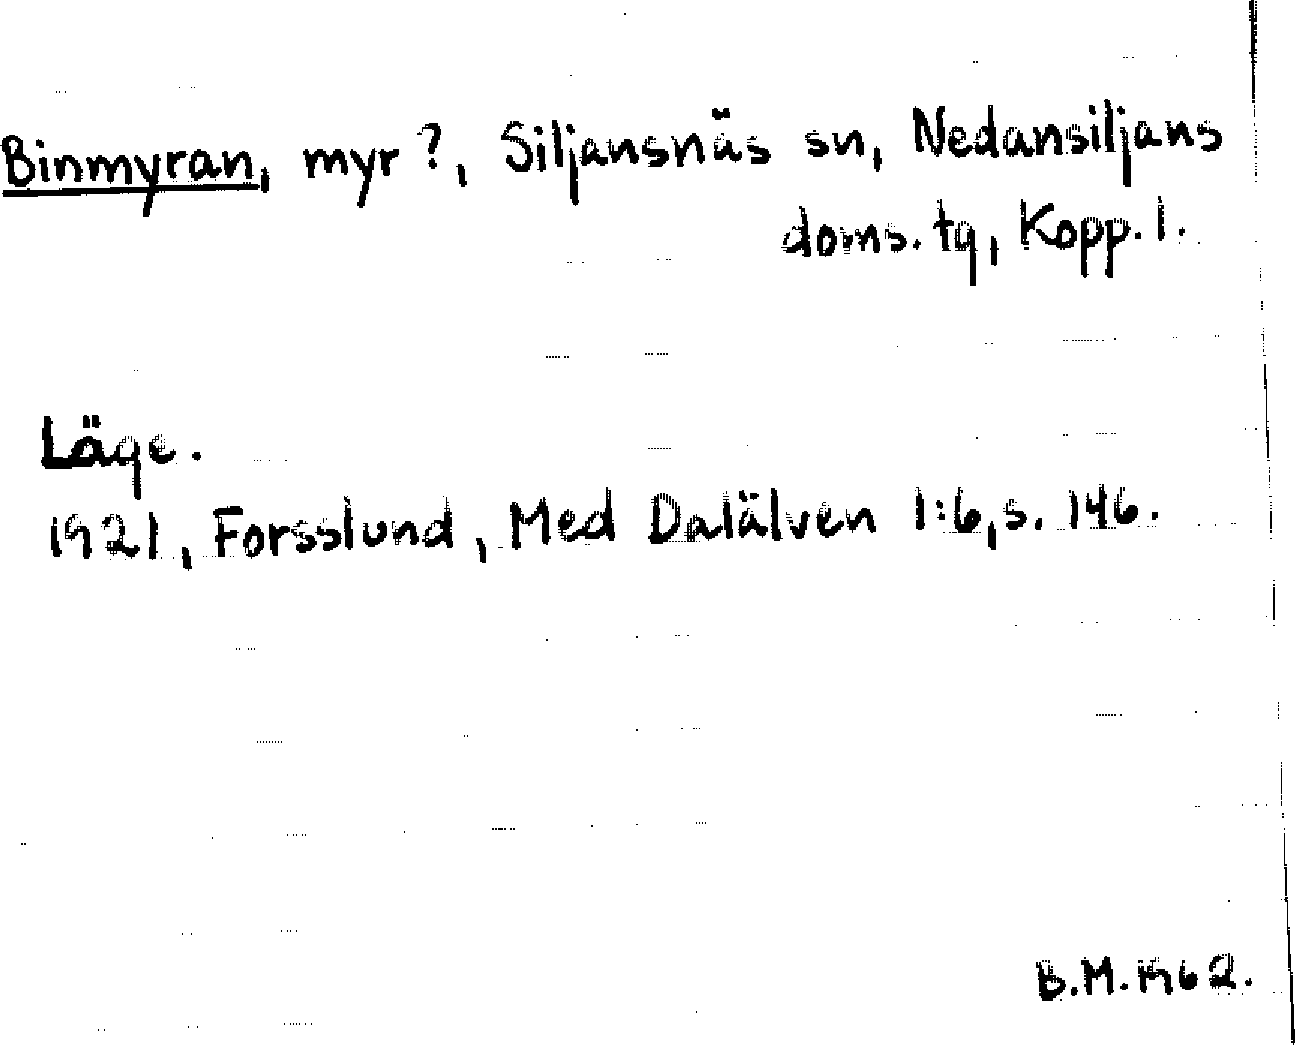 Binmyran, myr?, Siljansnäs sn, Nedansiljans
doms. tg, Kopp. l.
Läge.
1921, Forsslund, Med Dalälven 1:6, s. 146.
B.M. 1962.